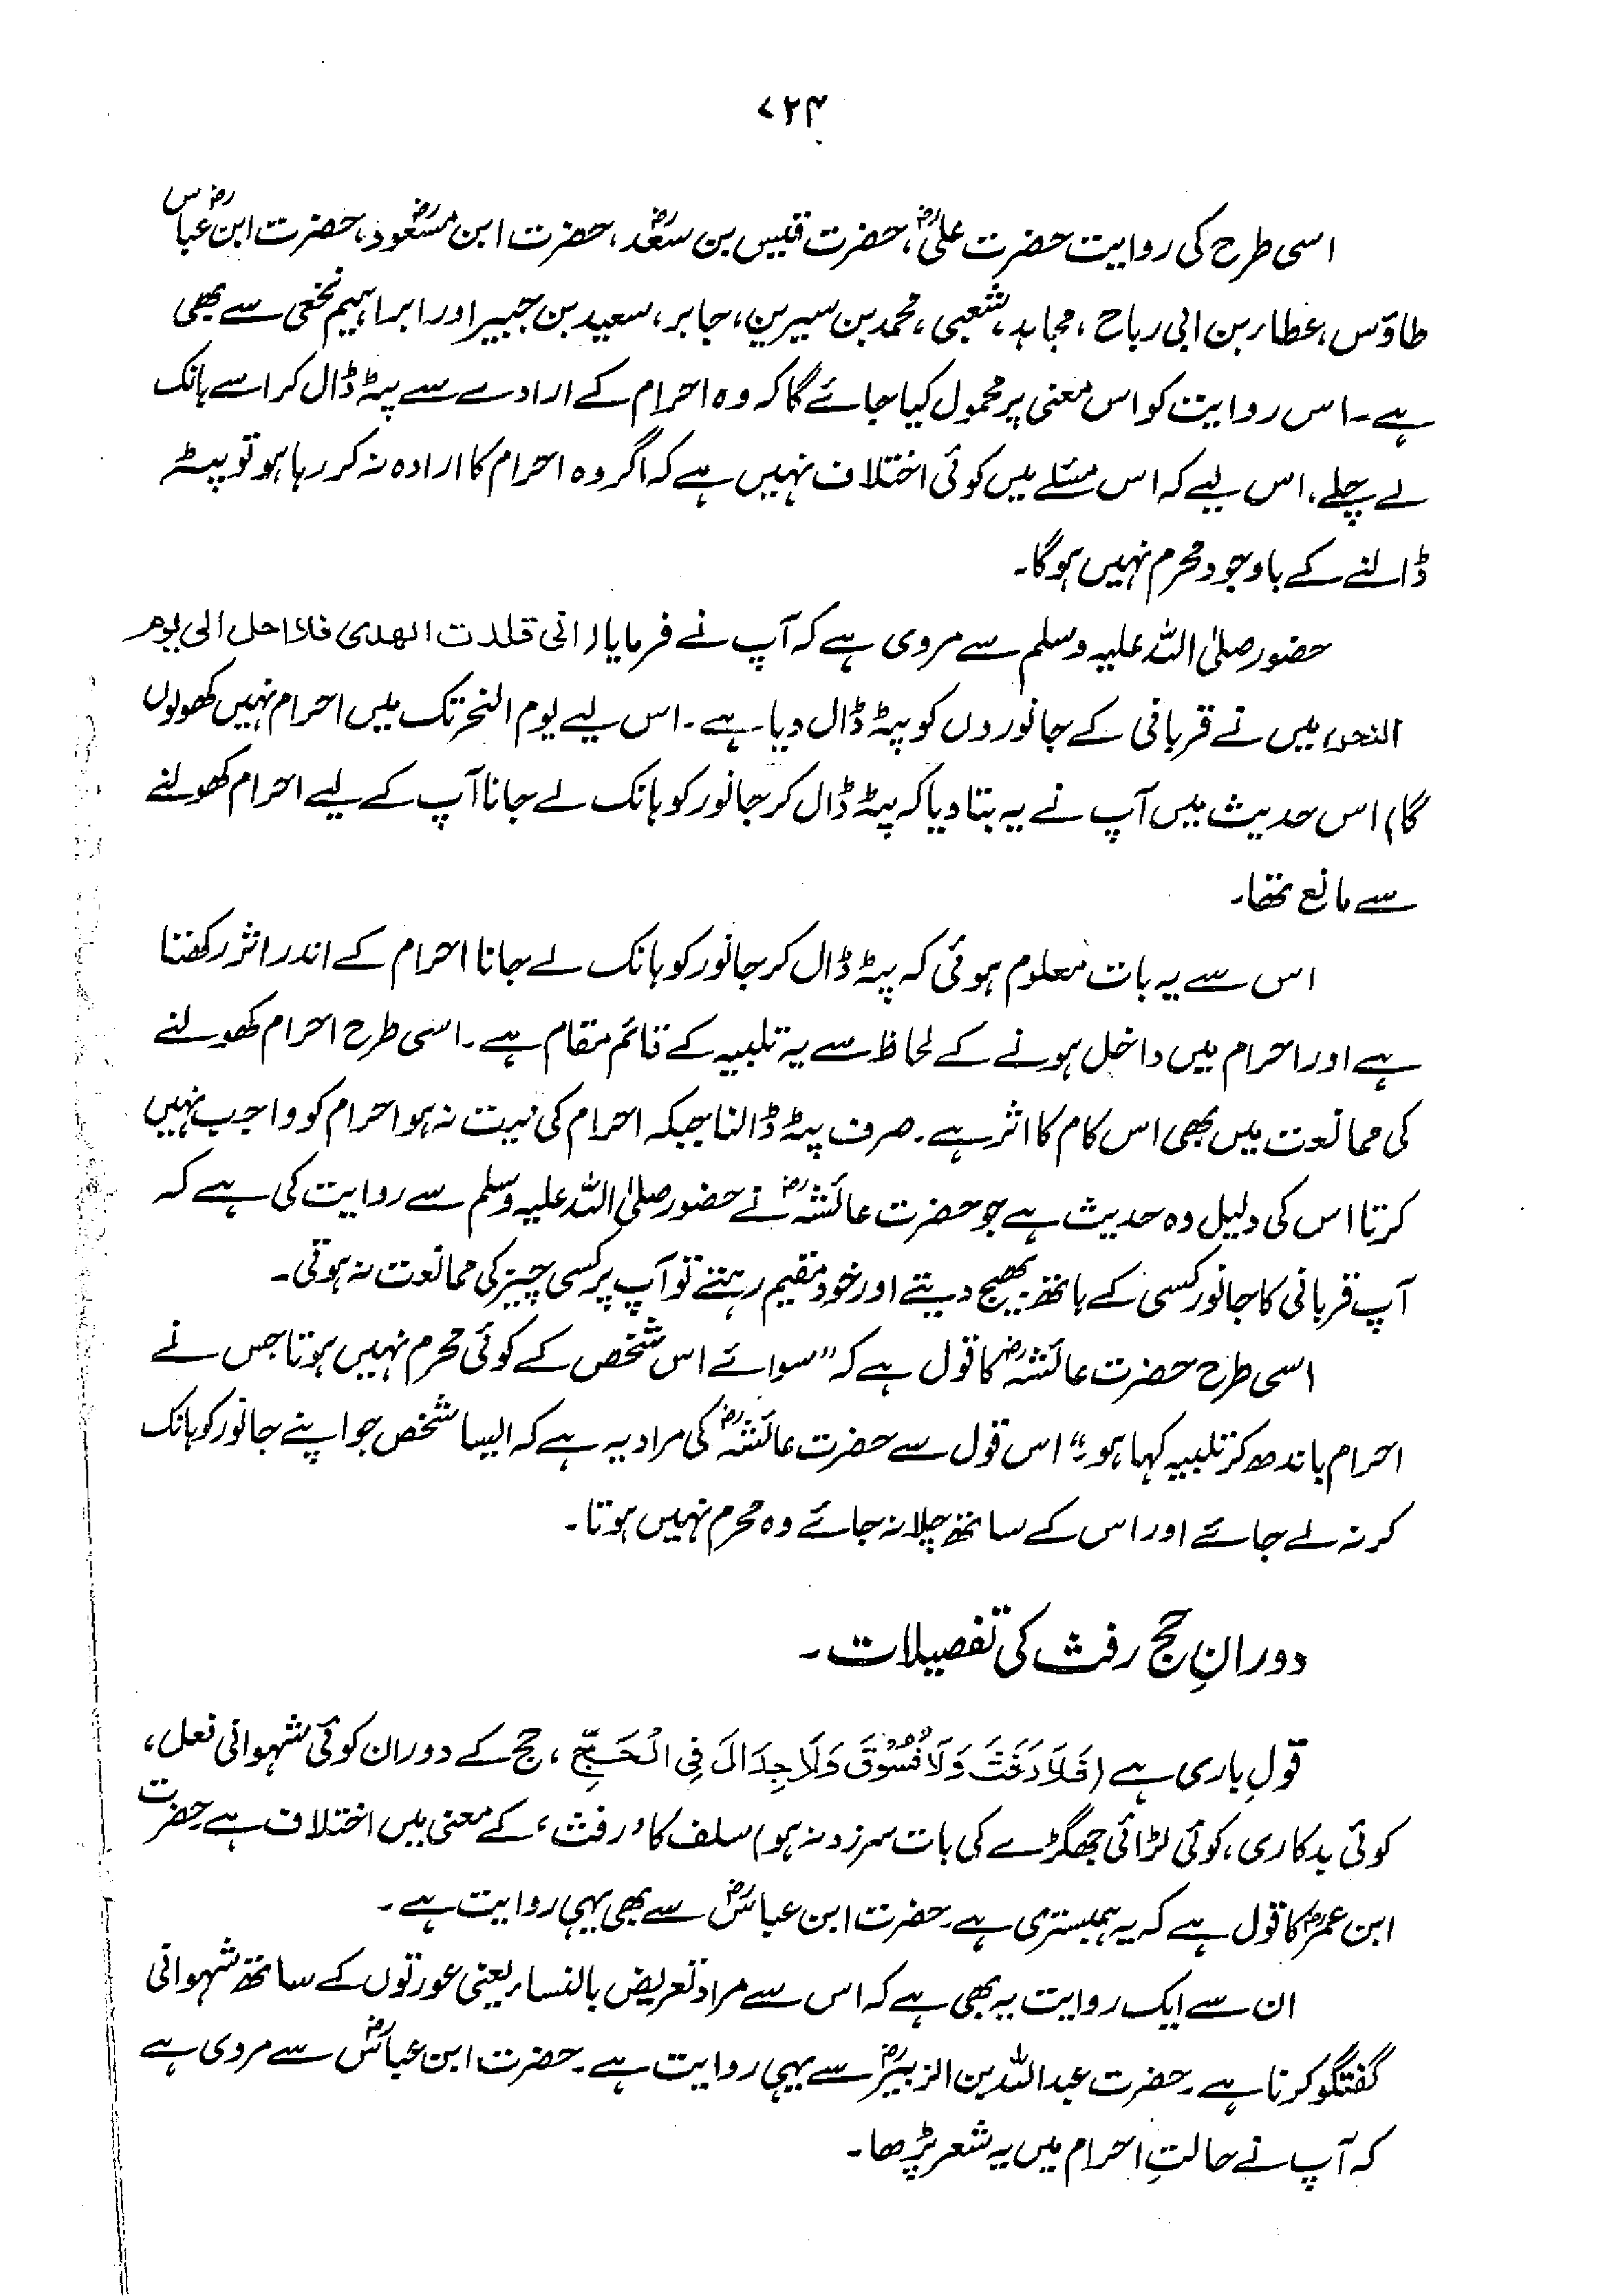 ۷۲۴
اسی طرح کی روایت حضرت علیؓ، حضرت قیس بن سعدؓ، حضرت ابن مسعودؓ، حضرت ابن عباسؓ
طاؤس، عطاء بن ابی رباح، مجاہد، شعبی، محمد بن سیرین، جابر، سعید بن جبیر اور ابراہیم نخعی سے بھی
ہے۔ اس روایت کو اس معنی پر محمول کیا جائے گا کہ وہ احرام کے ارادے سے پٹہ ڈال کر اسے ہانک
لے چلے، اس لیے کہ اس مسئلے میں کوئی اختلاف نہیں ہے کہ اگر وہ احرام کا ارادہ نہ کر رہا ہو تو پٹہ
ڈالنے کے باوجود محرم نہیں ہوگا۔
حضور صلی اللہ علیہ وسلم سے مروی ہے کہ آپ نے فرمایا (انی قلدت الهدی فلا احل الی یوم
النحر، میں نے قربانی کے جانوروں کو پٹہ ڈال دیا ہے۔ اس لیے یوم النحر تک میں احرام نہیں کھولوں
گا) اس حدیث میں آپ نے یہ بتا دیا کہ پٹہ ڈال کر جانور کو ہانک لے جانا آپ کے لیے احرام کھولنے
سے مانع تھا۔
اس سے یہ بات معلوم ہوئی کہ پٹہ ڈال کر جانور کو ہانک لے جانا احرام کے اندر اثر رکھتا
ہے اور احرام میں داخل ہونے کے لحاظ سے یہ تلبیہ کے قائم مقام ہے۔ اسی طرح احرام کھولنے
کی ممانعت میں بھی اس کام کا اثر ہے۔ صرف پٹہ ڈالنا جبکہ احرام کی نیت نہ ہو احرام کو واجب نہیں
کرتا اس کی دلیل وہ حدیث ہے جو حضرت عائشہؓ نے حضور صلی اللہ علیہ وسلم سے روایت کی ہے کہ
آپ قربانی کا جانور کسی کے ہاتھ بھیج دیتے اور خود مقیم رہتے تو آپ پر کسی چیز کی ممانعت نہ ہوتی۔
اسی طرح حضرت عائشہؓ کا قول ہے کہ "سوائے اس شخص کے کوئی محرم نہیں ہوتا جس نے
احرام باندھ کر تلبیہ کہا ہو۔" اس قول سے حضرت عائشہؓ کی مراد یہ ہے کہ ایسا شخص جو اپنے جانور کو ہانک
کر نہ لے جائے اور اس کے ساتھ چلا نہ جائے وہ محرم نہیں ہوتا۔
دورانِ حج رفث کی تفصیلات۔
قولِ باری ہے (فَلَا رَفَثَ وَلَا فُسُوْقَ وَلَا جِدَالَ فِی الْحَجِّ، حج کے دوران کوئی شہوانی فعل،
کوئی بدکاری، کوئی لڑائی جھگڑے کی بات سرزد نہ ہو) سلف کا 'رفث' کے معنی میں اختلاف ہے۔ حضرت
ابن عمرؓ کا قول ہے کہ یہ ہمبستری ہے۔ حضرت ابن عباسؓ سے بھی یہی روایت ہے۔
ان سے ایک روایت یہ بھی ہے کہ اس سے مراد تعریض بالنساء یعنی عورتوں کے ساتھ شہوانی
گفتگو کرنا ہے۔ حضرت عبداللہ بن الزبیرؓ سے یہی روایت ہے۔ حضرت ابن عباسؓ سے مروی ہے
کہ آپ نے حالتِ احرام میں یہ شعر پڑھا۔